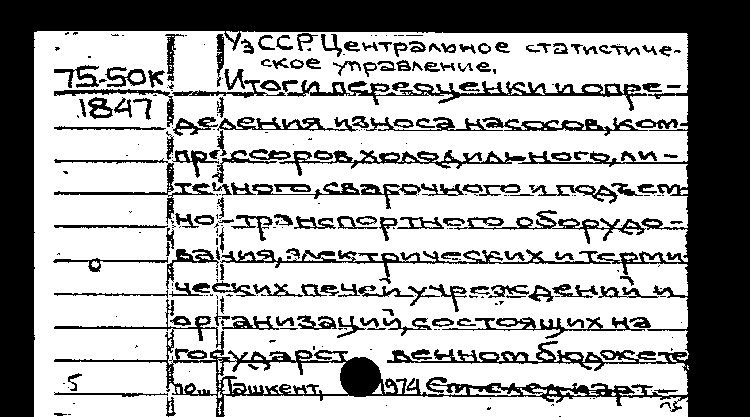 УзССР. Центральное статистиче-
ское управление.
75-50к
Итоги переоценки и опре-
1847
деления износа насосов, ком-
прессоров, холодильного, ли-
тейного, сварочного и подъем-
но-транспортного оборудо-
вания, электрических и терми-
ческих печей учреждений и
организаций, состоящих на
государст венном бюджете
5 по... Ташкент, 1974. См. след. карт.